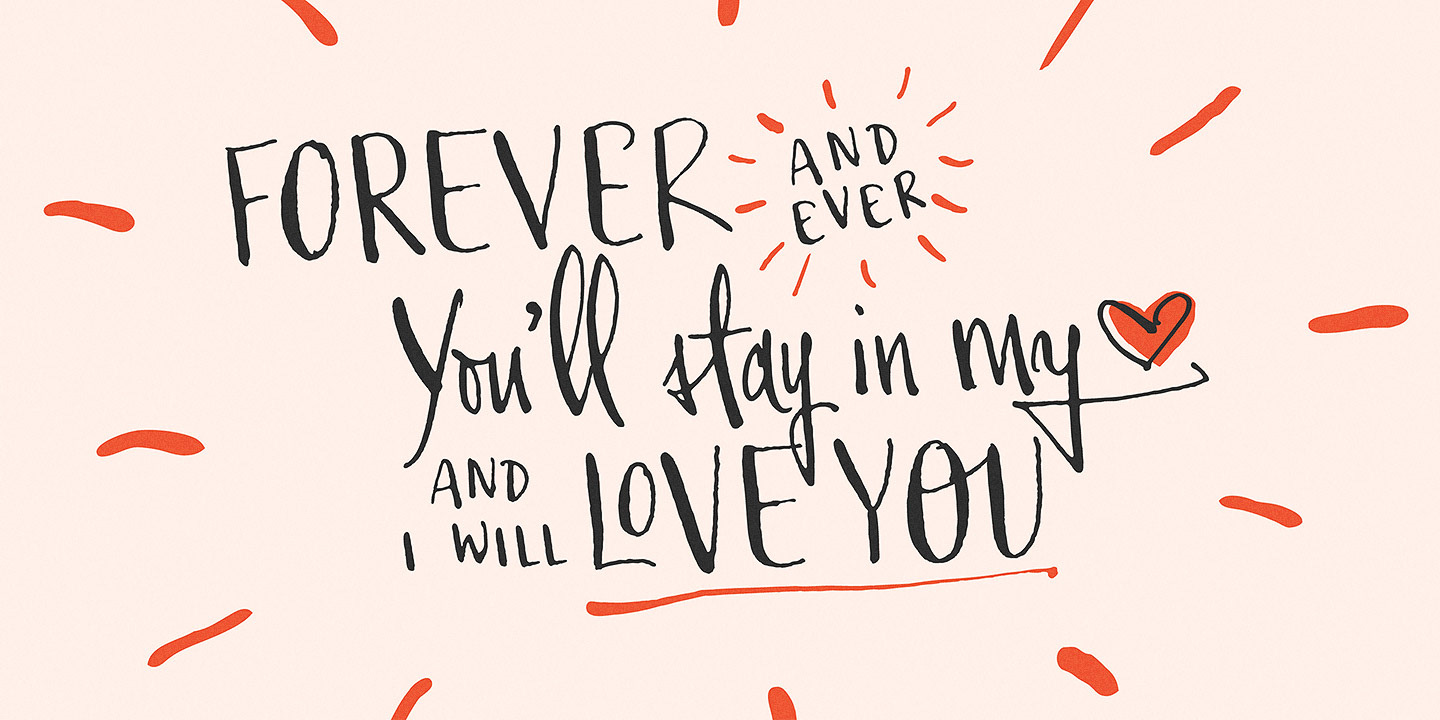 FOREVER AND EVER
You'll stay in my
AND I WILL LOVE YOU